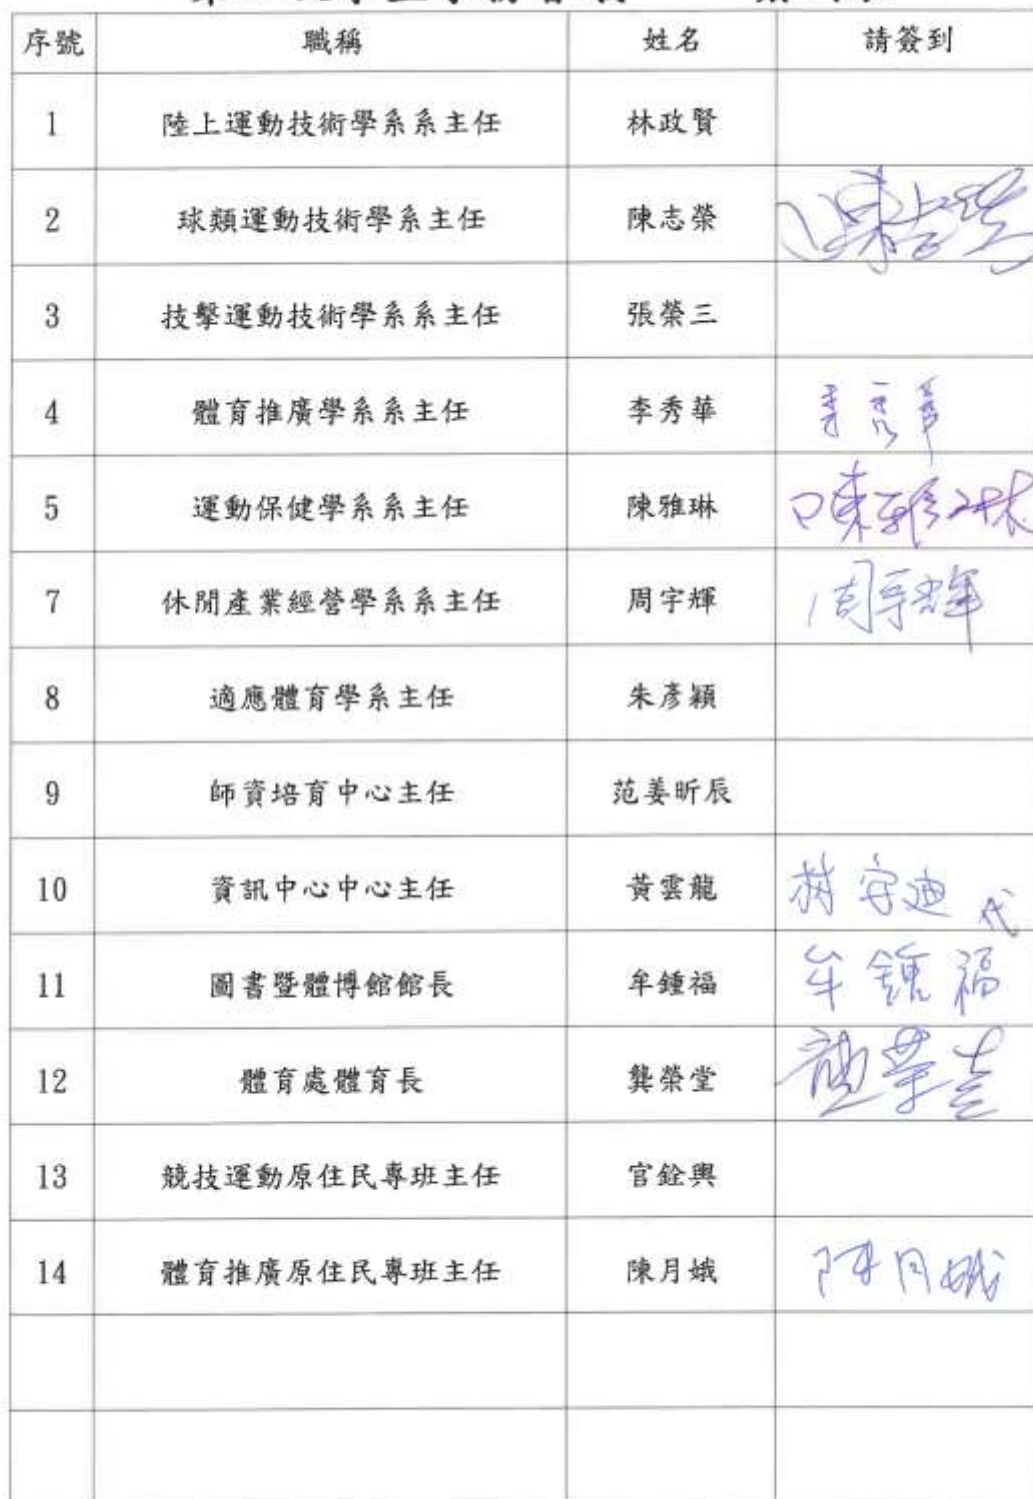 序號 職稱 姓名 請簽到
1 陸上運動技術學系系主任 林政賢
2 球類運動技術學系主任 陳志榮 陳志榮
3 技擊運動技術學系系主任 張榮三
4 體育推廣學系系主任 李秀華 李秀華
5 運動保健學系系主任 陳雅琳 陳雅琳
7 休閒產業經營學系系主任 周宇輝 周宇輝
8 適應體育學系主任 朱彥穎
9 師資培育中心主任 范姜昕辰
10 資訊中心中心主任 黃雲龍 林守迪 代
11 圖書暨體博館館長 牟鍾福 牟鍾福
12 體育處體育長 龔榮堂 龔榮堂
13 競技運動原住民專班主任 官銓興
14 體育推廣原住民專班主任 陳月娥 陳月娥